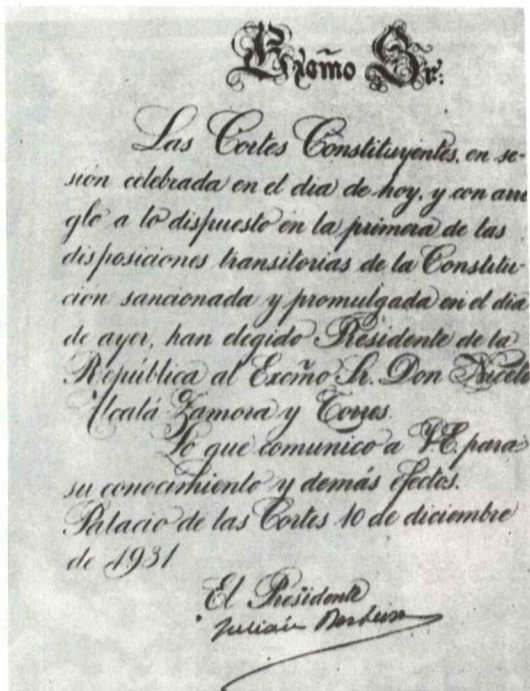 Excmo Sr:
Las Cortes Constituyentes, en se-
sión celebrada en el dia de hoy, y con arre
glo a lo dispuesto en la primera de las
disposiciones transitorias de la Constitu-
cion sancionada y promulgada en el dia
de ayer, han elegido Presidente de la
República al Excmo Sr. Don Niceto
Alcalá Zamora y Torres.
Lo que comunico a V.E. para
su conocimiento y demás efectos.
Palacio de las Cortes 10 de diciembre
de 1931
El Presidente
Julián Besteiro